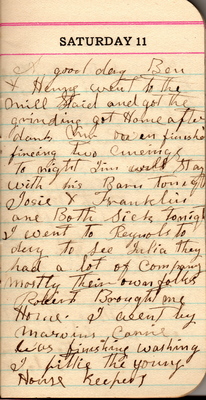 SATURDAY 11
A good day Ben
& Henry went to the
mill Staid and got the
grinding got Home after
dark Mr finished
fincing two
to night Jim will Stay
with his Barn tonight
Josie & Franklin
are Both Sick tonight
I went to Reynolds to
day to See Julia they
had a lot of Company
mostly their own folks
Robert Brought me
Home. I went by
Marvins Carrie
was finishing washing
I pittie the young
House Keepers